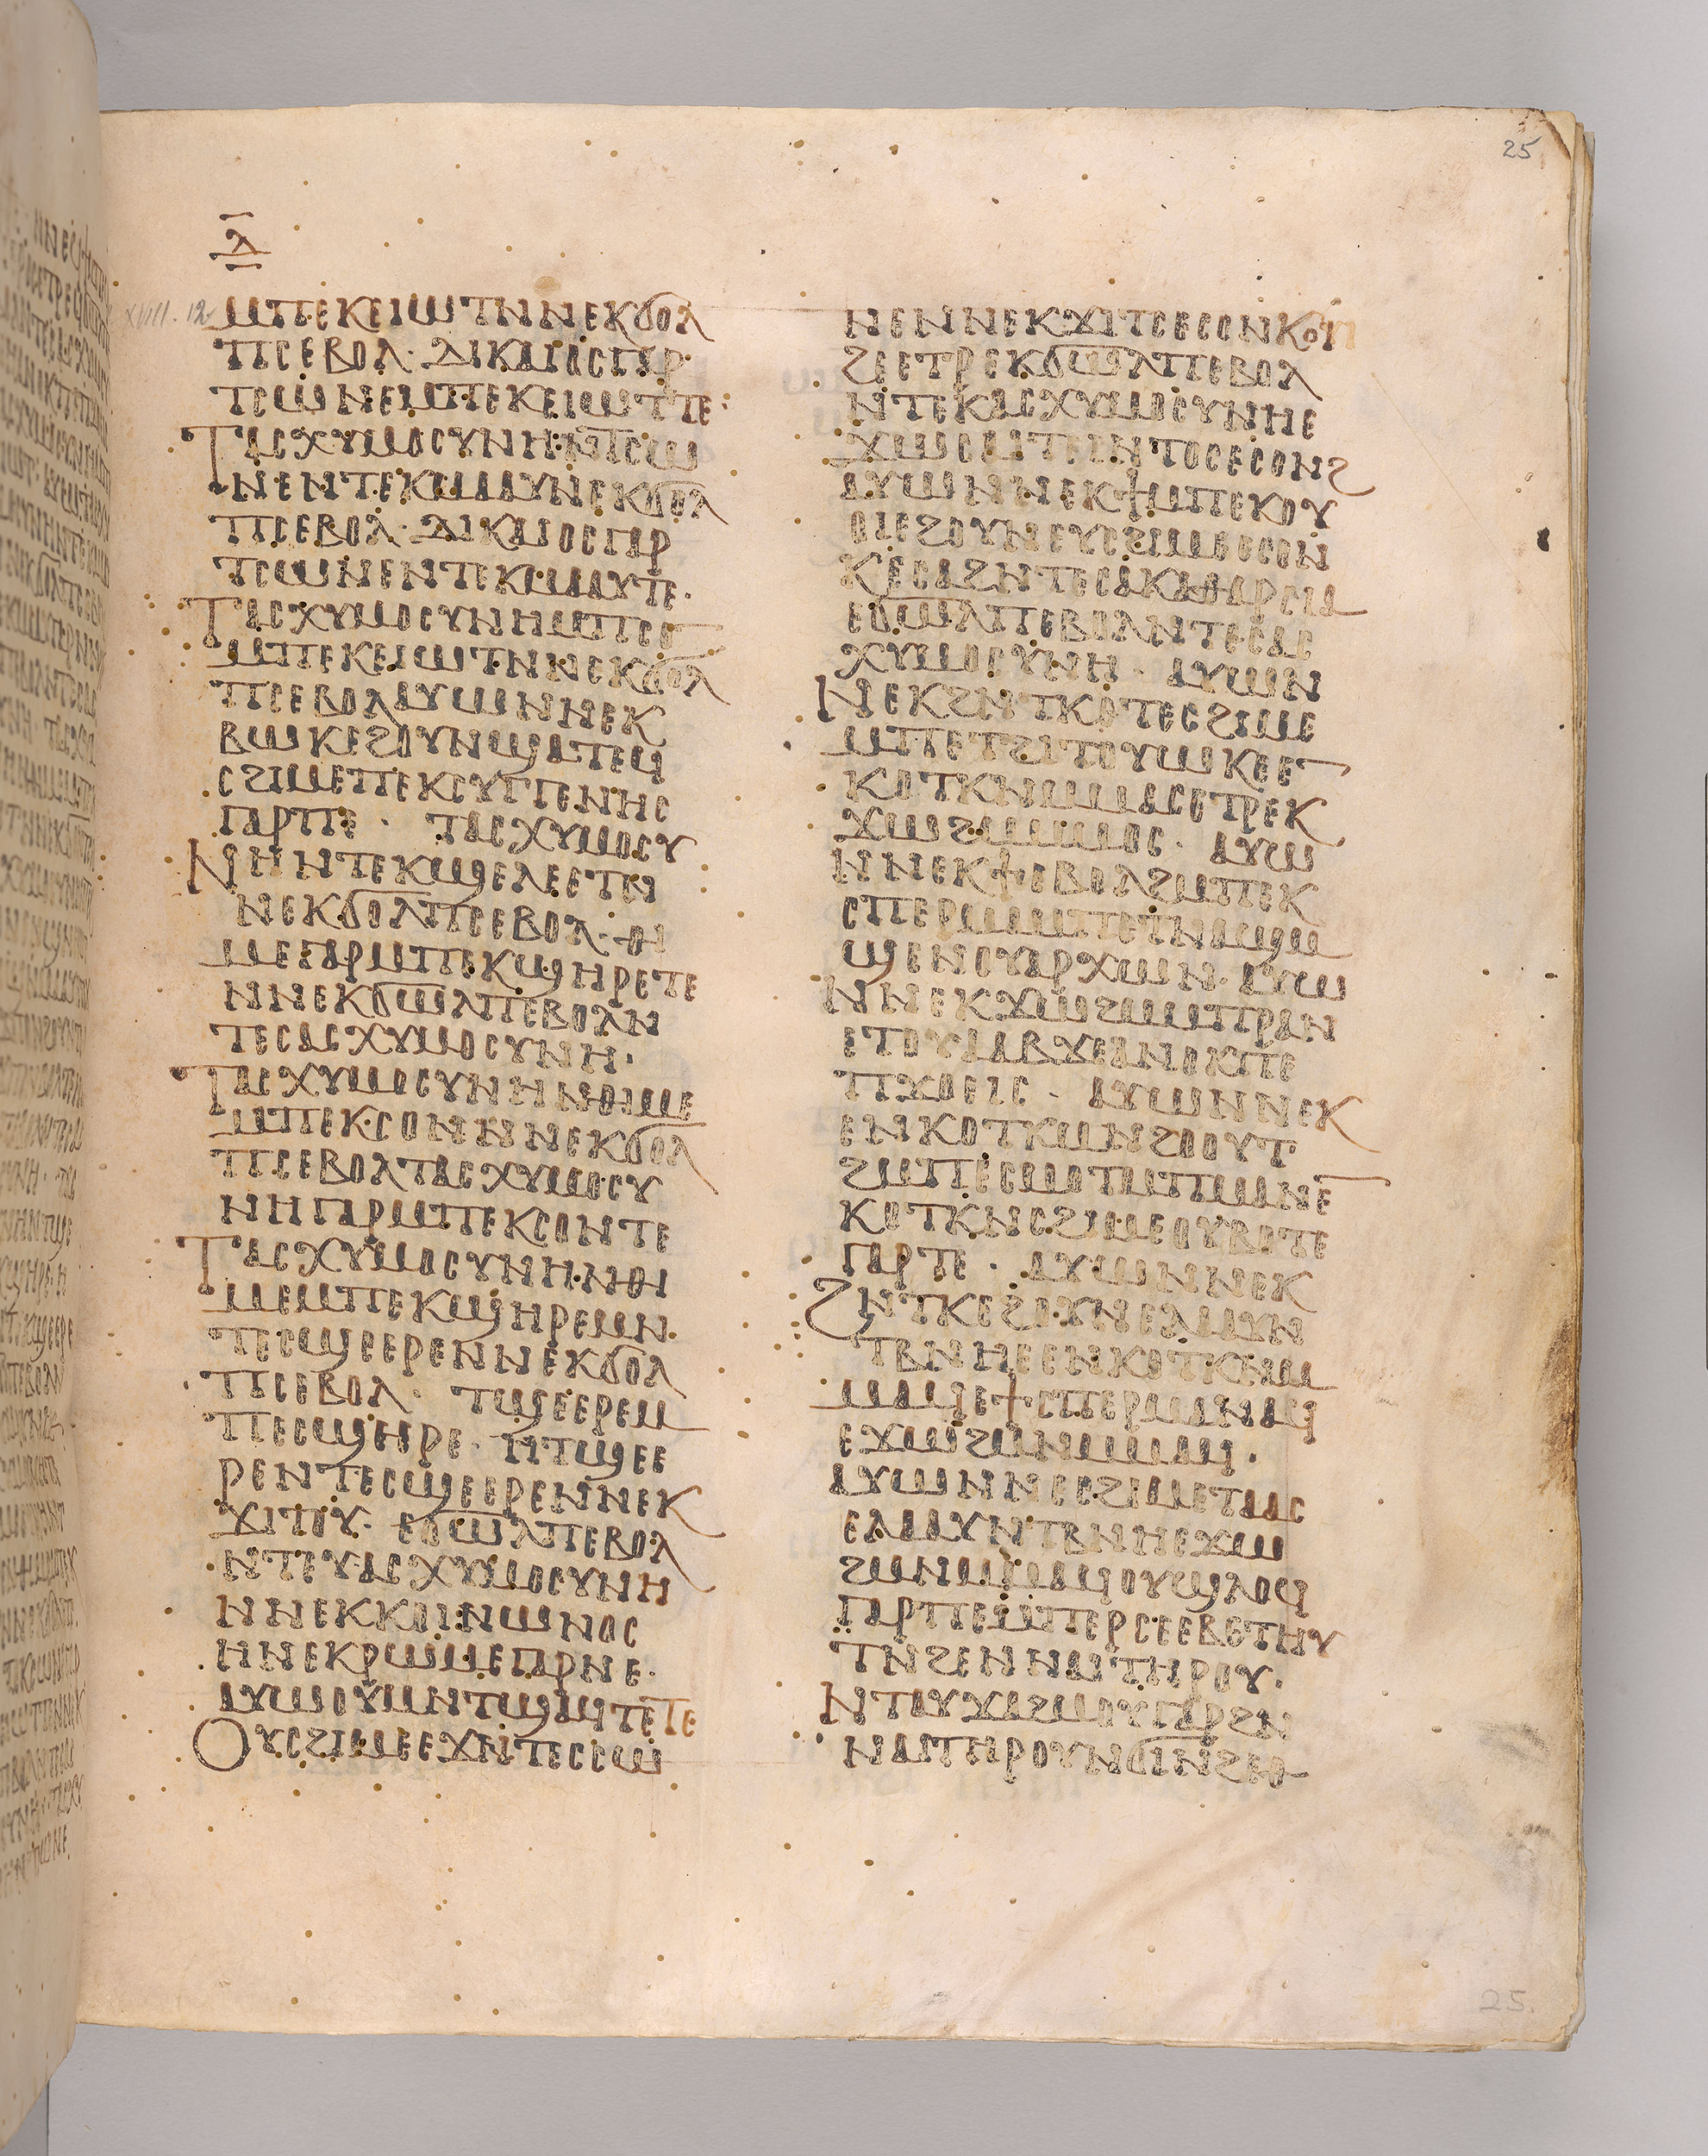 25
ⲗ
XVIII. 12
ⲙⲡⲉⲕⲉⲓⲱⲧⲛⲛⲉⲕϭⲟⲗ
ⲡⲥⲉⲃⲟⲗ· ⲇⲓⲕⲁⲓⲟⲥⲅⲁⲣ
ⲧⲥⲱⲛⲉⲙⲡⲉⲕⲉⲓⲱⲧⲧⲉ:
ⲧⲁⲥⲭⲩⲙⲟⲥⲩⲛⲏⲛⲧⲥⲱ
ⲛⲉⲛⲧⲉⲕⲙⲁⲁⲩⲛⲉⲕϭⲟⲗ
ⲡⲥⲉⲃⲟⲗ· ⲇⲓⲕⲁⲓⲟⲥⲅⲁⲣ
ⲧⲥⲱⲛⲉⲛⲧⲉⲕⲙⲁⲁⲩⲧⲉ·
ⲧⲁⲥⲭⲩⲙⲟⲥⲩⲛⲏⲙⲡⲥⲟ
ⲙⲡⲉⲕⲉⲓⲱⲧⲛⲛⲉⲕϭⲟⲗ
ⲡⲥⲉⲃⲟⲗⲁⲩⲱⲛⲛⲉⲕ
ⲃⲱⲕⲉϩⲟⲩⲛϣⲁⲧⲉϥ
ⲥϩⲓⲙⲉⲡⲉⲕⲥⲩⲅⲅⲉⲛⲏⲥ
ⲅⲁⲣⲡⲉ· ⲧⲁⲥⲭⲩⲙⲟⲥⲩ
ⲛⲏⲛⲧⲉⲕϣⲉⲗⲉⲉⲧⲛ
ⲛⲉⲕϭⲟⲗⲡⲥⲉⲃⲟⲗ· ⲑⲓ
ⲙⲉⲅⲁⲣⲙⲡⲉⲕϣⲏⲣⲉⲧⲉ
ⲛⲛⲉⲕϭⲱⲗⲡⲉⲃⲟⲗⲛ
ⲧⲉⲥⲁⲥⲭⲩⲙⲟⲥⲩⲛⲏ·
ⲧⲁⲥⲭⲩⲙⲟⲥⲩⲛⲏⲛⲑⲓⲙⲉ
ⲙⲡⲉⲕⲥⲟⲛⲛⲛⲉⲕϭⲟⲗ
ⲡⲥⲉⲃⲟⲗⲧⲁⲥⲭⲩⲙⲟⲥⲩ
ⲛⲏⲅⲁⲣⲙⲡⲉⲕⲥⲟⲛⲧⲉ
ⲧⲁⲥⲭⲩⲙⲟⲥⲩⲛⲏⲛⲑⲓ
ⲙⲉⲙⲡⲉⲕϣⲏⲣⲉⲙⲛ
ⲧⲉⲥϣⲉⲉⲣⲉⲛⲛⲉⲕϭⲟⲗ
ⲡⲥⲉⲃⲟⲗ· ⲧϣⲉⲉⲣⲉⲙ
ⲡⲉⲥϣⲏⲣⲉ· ⲏⲧϣⲉⲉ
ⲣⲉⲛⲧⲉⲥϣⲉⲉⲣⲉⲛⲛⲉⲕ
ϫⲓⲧⲟⲩ· ⲉϭⲱⲗⲡⲉⲃⲟⲗ
ⲛⲧⲉⲩⲁⲥⲭⲩⲙⲟⲥⲩⲛⲏ
ⲛⲛⲉⲕⲕⲟⲓⲛⲱⲛⲟⲥ
ⲏⲛⲉⲕⲣⲱⲙⲉⲅⲁⲣⲛⲉ·
ⲁⲩⲱⲟⲩⲙⲛⲧϣⲁϥⲧⲉⲧⲉ
ⲟⲩⲥϩⲓⲙⲉⲉϫⲛⲧⲉⲥⲥⲱ
ⲛⲉⲛⲛⲉⲕϫⲓⲧⲥⲉⲥⲟⲛⲕⲟⲩⲓ
ϩⲉⲉⲧⲣⲉⲕϭⲱⲗⲡⲉⲃⲟⲗ
ⲛⲧⲉⲕⲁⲥⲭⲩⲙⲟⲥⲩⲛⲏⲉ
ϫⲱⲥⲙⲡⲉⲓⲛⲧⲟⲥⲉⲥⲟⲛϩ
ⲁⲩⲱⲛⲛⲉⲕϯⲙⲡⲉⲕⲟⲩ
ⲟⲓⲉϩⲟⲩⲛⲉⲩⲥϩⲓⲙⲉⲉⲥⲟⲛ
ⲕⲉⲥⲁϩⲛⲧⲉⲥⲁⲕⲁⲑⲁⲣⲥⲓⲁ
ⲉϭⲱⲗⲡⲉⲃⲟⲗⲛⲧⲉⲥⲁⲥ
ⲭⲩⲙⲟⲥⲩⲛⲏ· ⲁⲩⲱⲛ
ⲛⲉⲕϩⲛⲧⲕⲟⲧⲉⲥϩⲓⲙⲉ
ⲙⲡⲉⲧϩⲓⲧⲟⲩⲱⲕⲉⲉ
ⲕⲟⲧⲕⲛⲙⲙⲁⲥⲉⲧⲣⲉⲕ
ϫⲱϩⲙⲙⲙⲟⲥ· ⲁⲩⲱ
ⲛⲛⲉⲕϯⲉⲃⲟⲗϩⲙⲡⲉⲕ
ⲥⲡⲉⲣⲙⲙⲡⲉⲧⲛⲁϣⲙ
ϣⲉⲛⲟⲩⲁⲣⲭⲱⲛ· ⲁⲩⲱ
ⲛⲛⲉⲕϫⲱϩⲙⲙⲡⲣⲁⲛ
ⲉⲧⲟⲩⲁⲁⲃϫⲉⲁⲛⲟⲕⲡⲉ
ⲡϫⲟⲉⲓⲥ· ⲁⲩⲱⲛⲛⲉⲕ
ⲉⲛⲕⲟⲧⲕⲙⲛϩⲟⲟⲩⲧ·
ϩⲙⲡⲉⲥⲙⲟⲧⲙⲡⲙⲁⲛⲉ
ⲕⲟⲧⲕⲛⲥϩⲓⲙⲉⲟⲩⲃⲟⲧⲉ
ⲅⲁⲣⲧⲉ· ⲁⲩⲱⲛⲛⲉⲕ
ϩⲛⲧⲕⲉϩⲟⲩⲛⲉⲗⲁⲁⲩⲛ
ⲧⲃⲛⲏⲉⲉⲛⲕⲟⲧⲕⲛⲙ
ⲙⲁϥⲉϯⲥⲡⲉⲣⲙⲁⲛⲁϥ
ⲉϫⲱϩⲙⲛⲙⲙⲁϥ·
ⲁⲩⲱⲛⲛⲉⲥϩⲓⲙⲉⲧⲁⲁⲥ
ⲉⲗⲁⲁⲩⲛⲧⲃⲛⲏⲉϫⲱ
ϩⲙⲛⲙⲙⲁϥⲟⲩϣⲗⲟϥ
ⲅⲁⲣⲡⲉⲙⲡⲉⲣⲥⲉⲉⲃⲉⲧⲏⲩ
ⲧⲛϩⲉⲛⲛⲁⲓⲧⲏⲣⲟⲩ·
ⲛⲧⲁⲩϫⲁϩⲙⲟⲩⲅⲁⲣϩⲛ
ⲛⲁⲓⲧⲏⲣⲟⲩⲛϭⲓⲛϩⲉⲑ
25